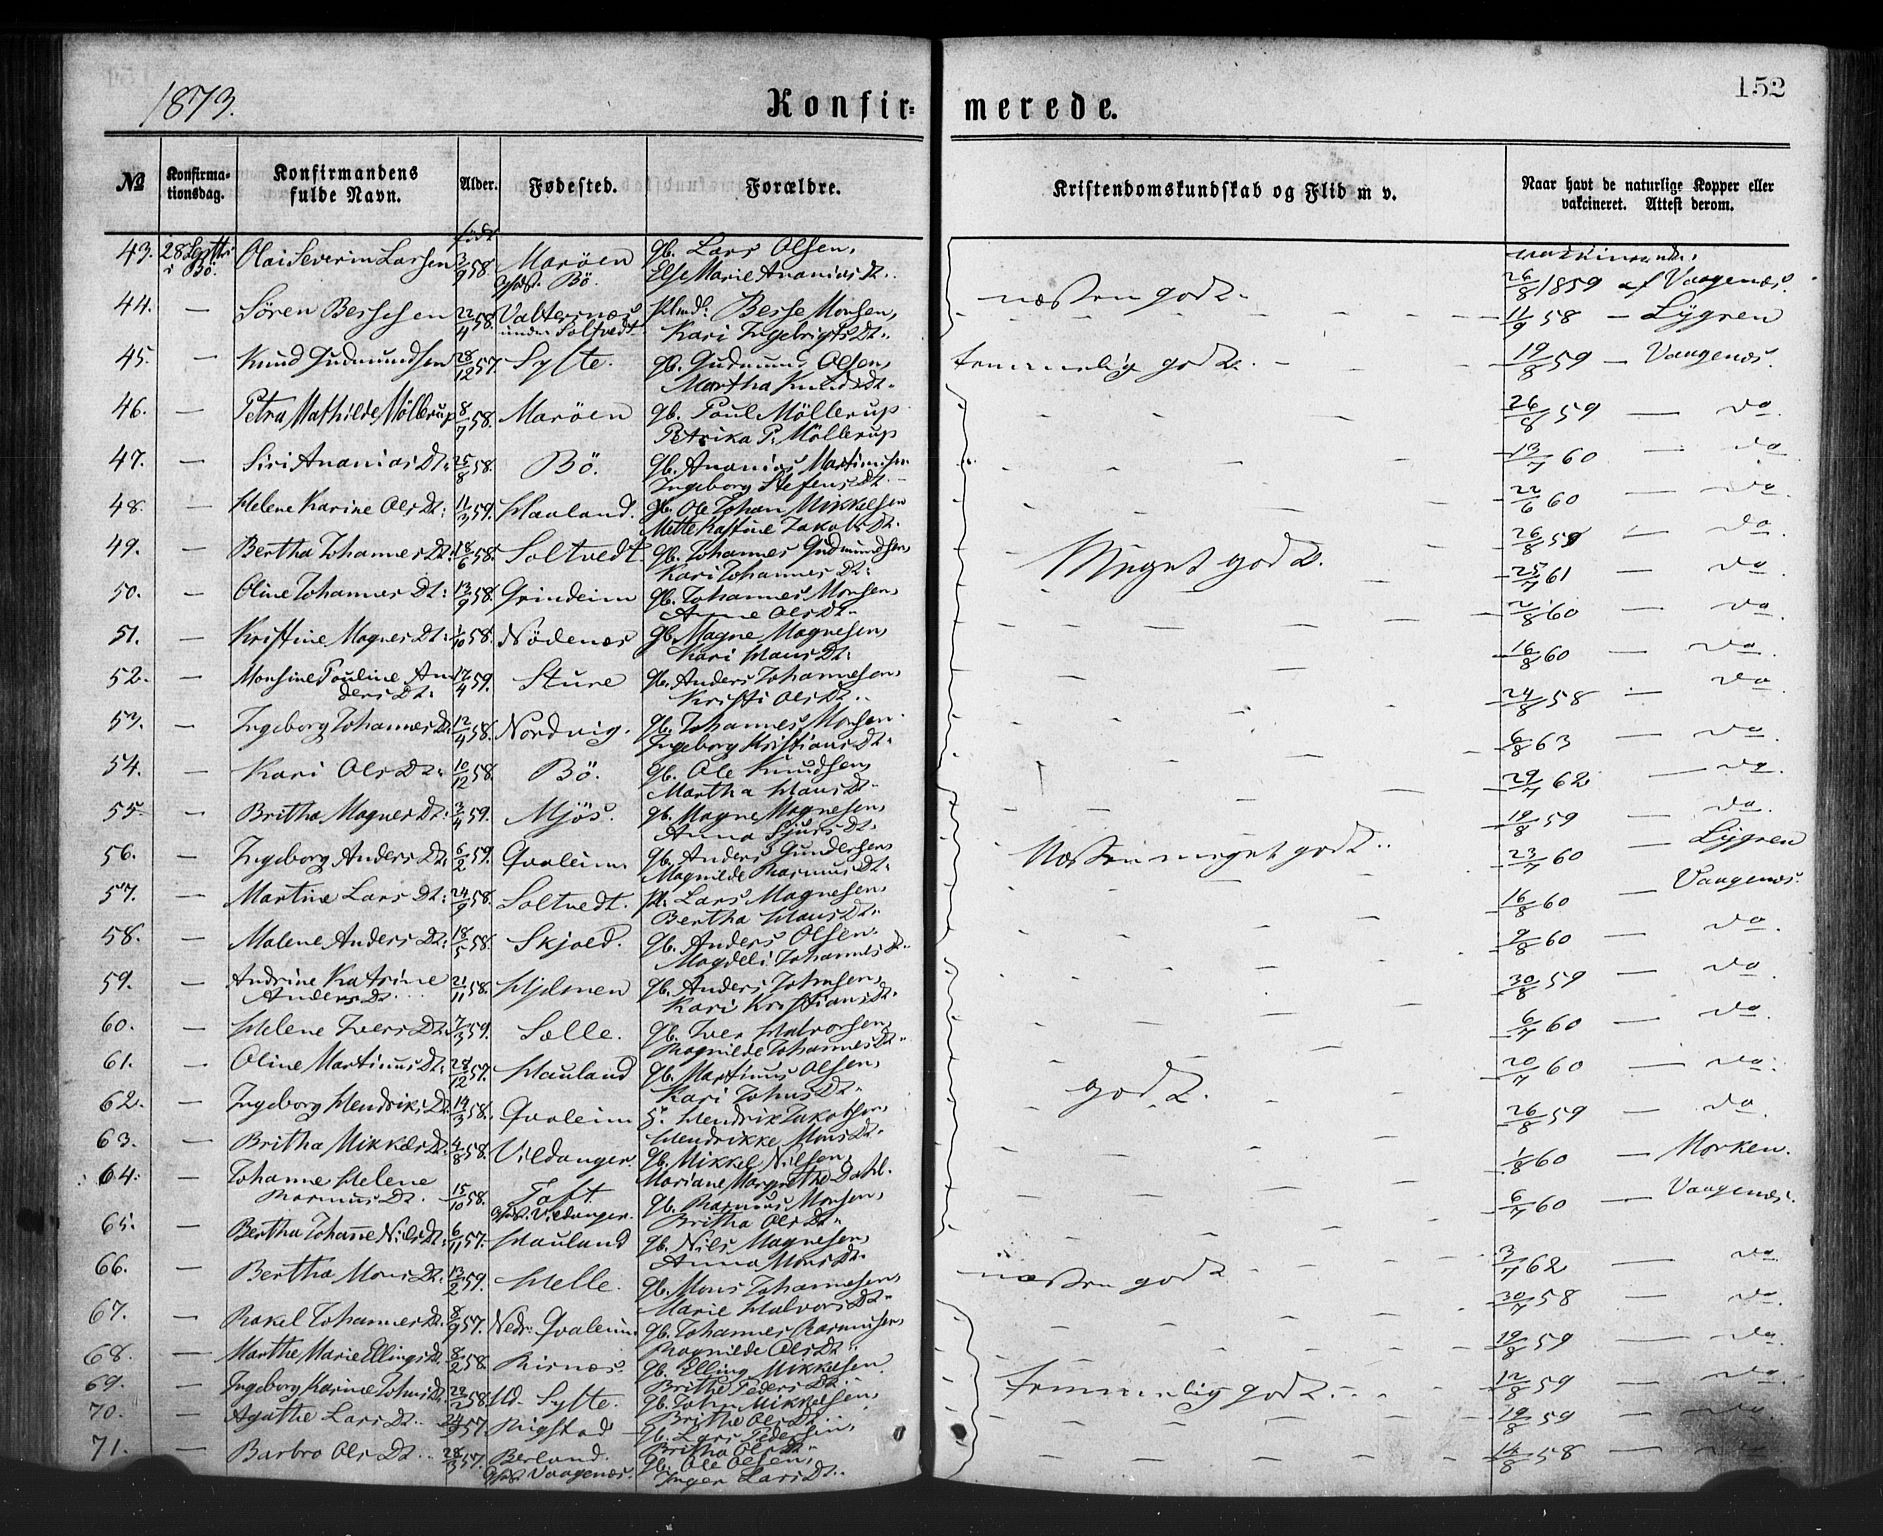 1873.
Konfir=
merede.
152
№
Konfirma-
tionsdag.
Konfirmandens
fulde Navn.
Alder.
Fødested.
Forældre.
Kristendomskundskab og Flid m v.
Naar havt de naturlige Kopper eller
vakcineret. Attest derom.
født
43. 28 Septbr i Bö. Olai Severin Larsen 3/9 58. Maröen Gb. Lars Olsen,
Opfst. Bö. Else Marie Ananias Dt..
næsten godt
26/8 1859 af Vaagenæs.
44. — Sören Bessesen 22/4 58. Valternæs Plmd. Besse Monsen,
under Soltvedt Kari Ingebrigts Dt..
11/9 58 — Lÿgren
45. — Knud Gudmundsen 28/12 57. Sylte. Gb. Gudmund Olsen,
Martha Knuds Dt..
temmelig godt. —
19/8 59 — Vaagenæs.
46. — Petra Mathilde Möllerup 8/7 58. Maröen Gb. Poul Möllerup
Petrika P. Möllerup
26/8 59 — do
47. — Siri Ananias Dt. 25/8 58. Bö. Gb. Ananias Martinusen
Ingeborg Stefens Dt.
13/7 60 — do
48. — Helene Karine Ols Dt. 11/3 59. Hauland. Gb. Ole Johan Mikkelsen
Mette Kastine Jakobs Dt.
22/6 60 — do
49. — Bertha Johannes Dt. 18/6 58. Soltvedt. Gb. Johannes Gudmundsen,
Kari Johannes Dt.
Meget godt.
26/8 59 — do
50. — Oline Johannes Dt. 13/9 58. Grindeim Gb. Johannes Monsen,
Anne Ols Dt.
25/7 61 — do
51. — Kristine Magnes Dt. 1/10 58. Nödenæs Gb. Magne Magnesen,
Kari Hans Dt.
2/8 60 — do
52. — Monsine Pauline An- 17/4 59. Sture Gb. Anders Johannesen,
ders Dt. Kristi Ols Dt..
16/8 60 — do
53. — Ingeborg Johannes Dt. 12/4 58. Nordvig. Gb. Johannes Monsen
Ingeborg Kristians Dt.
24/8 58 — do
54. — Kari Ols Dt. 10/12 58. Bö. Gb. Ole Knudsen,
Martha Hans Dt.
6/8 63 — do
55. — Britha Magnes Dt. 3/4 59. Mjös. Gb. Magne Magnesen,
Anna Sjurs Dt.
29/7 62 — do
56. — Ingeborg Anders Dt. 6/2 59. Qvaleim Gb. Anders Gundersen
Magnilde Rasmus Dt.
Næsten meget godt..
19/8 59 — do
57. — Martine Lars Dt. 24/9 58. Soltvedt. Pl. Lars Magnesen,
Bertha Hans Dt.
23/7 60 — Lÿgren
58. — Malene Anders Dt. 18/5 58. Skjold. Gb. Anders Olsen.
Magdeli Johannes Dt..
16/8 60 — Vaagenæs.
59. — Andrine Katrine 21/11 58. Hjelmen Gb. Anders Johnsen,
Anders Dt. Kari Kristians Dt.
9/8 60 — do
60. — Helene Ivers Dt. 7/3 59. Sælle. Gb. Iver Halvorsen,
Ragnilde Johannes Dt..
30/8 59 — do
61. — Oline Martinus Dt. 28/12 57. Hauland Gb. Martinus Olsen,
Kari Johns Dt.
godt.
6/7 60 — do
62. — Ingeborg Hendriks Dt. 14/3 58. Qvaleim S. Hendrik Jakobsen,
Hendrikke Mons Dt.
20/7 60 — do
63. — Britha Mikkels Dt. 4/8 58. Vildanger. Gb. Mikkel Nilsen,
Mariane Margrethe Dahl.
26/8 59 — do
64. — Johanne Helene 15/10 58. Toft. Gb. Rasmus Monsen,
Rasmus Dt. Opfst. Vildanger. Britha Ols Dt.
1/8 60 — Morken.
65. — Bertha Johanne Nils Dt. 6/11 57. Hauland Gb. Nils Magnesen,
Anna Mons Dt.
6/7 60 — Vaagenæs.
66. — Bertha Mons Dt. 13/2 59. Helle. Gb. Mons Johannesen,
Marie Halvors Dt.
næsten godt
3/7 62 — do
67. — Rakel Johannes Dt. 8/9 57. Nedr. Qvaleim Gb. Johannes Rasmusen,
Ragnilde Ols Dt.
30/7 58 — do
68. — Marthe Marie Ellings Dt. 8/2 58. Risnæs. Gb. Elling Mikkelsen
Brithe Peders Dt.
19/8 59 — do
69. — Ingeborg Karine Johns Dt. 22/2 58. Sylte. Gb. John Mikkelsen,
Brithe Ols Dt.
temmelig godt. — —
12/8 59 — do
70. — Agathe Lars Dt. 24/9 57. Rigstad Gb. Lars Pedersen,
Britha Ols Dt.
19/8 59 — do
71. — Barbro Ols Dt. 28/3 57. Berland. Gb. Ole Olsen,
Opfst. Vaagenæs. Inger Lars Dt..
14/8 58 — do